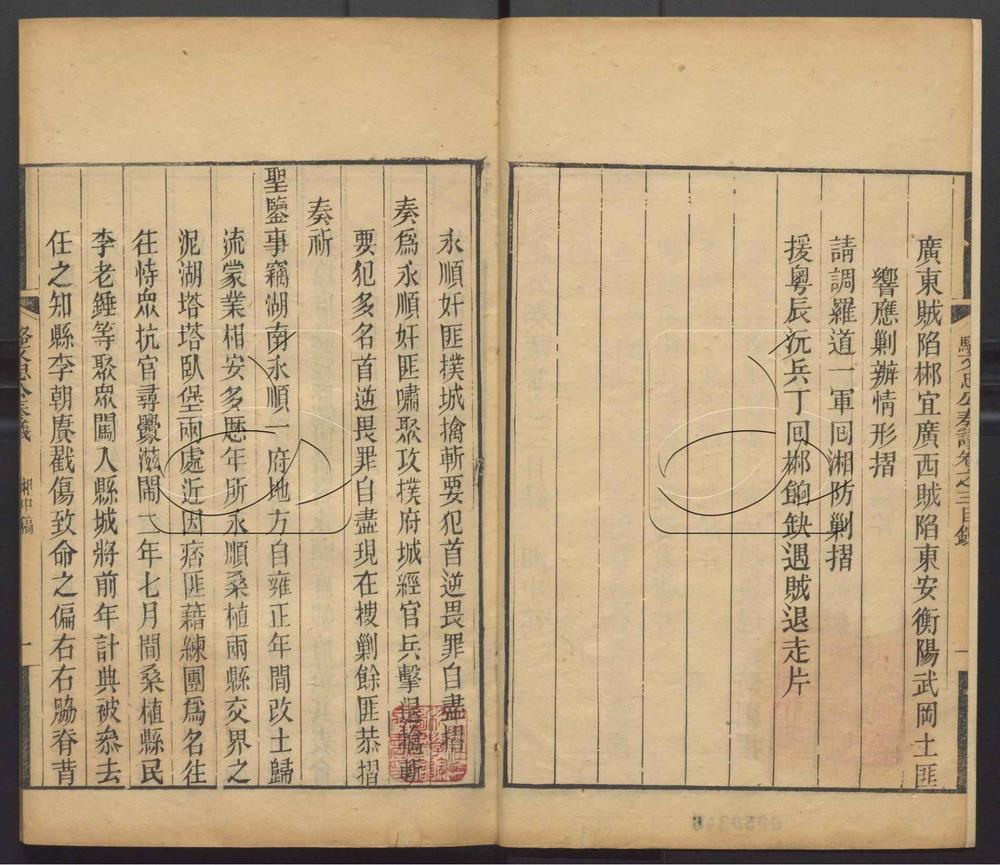 廣東賊陷郴宜廣西賊陷東安衡陽武岡土匪
響應剿辦情形摺
請調羅道一軍囘湘防剿摺
援粵辰沅兵丁囘郴餉缺遇賊退走片
永順奸匪撲城擒斬要犯首逆畏罪自盡摺
奏爲永順奸匪嘯聚攻撲府城經官兵擊退擒斬
要犯多名首逆畏罪自盡現在搜剿餘匪恭摺
奏祈
聖鑒事竊湖南永順一府地方自雍正年間改土歸
流蒙業相安多歷年所永順桑植兩縣交界之
泥湖塔塔臥堡兩處近因痞匪藉練團爲名往
往恃眾抗官尋釁滋鬧一年七月間桑植縣民
李老錘等聚眾闖入縣城將前年計典被叅去
任之知縣李朝賡戳傷致命之偏右右脇脊背